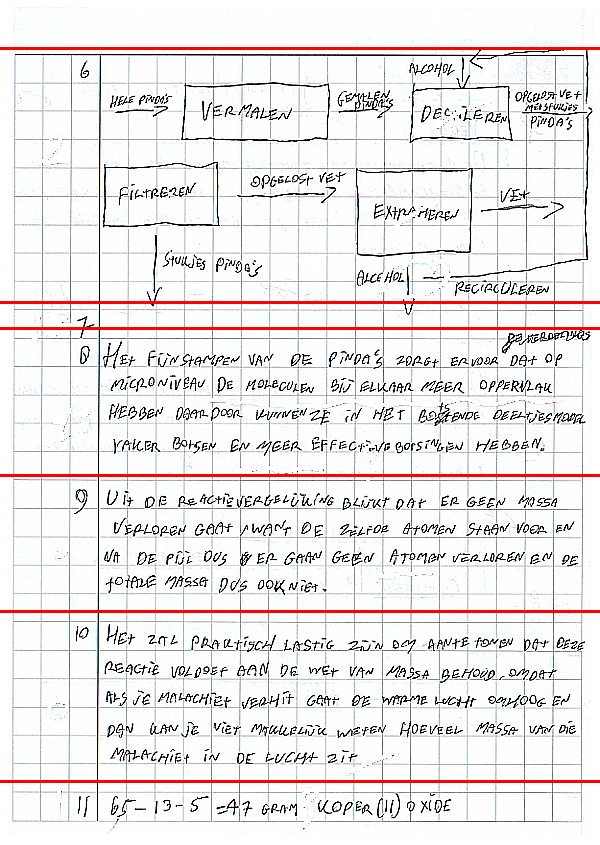 6
HELE PINDA'S
VERMALEN
GEMALEN PINDA'S
ALCOHOL
OPGELOST VET
MET STUKJES
PINDA'S
FILTREREN
OPGELOST VET
EXTRAHEREN
VET
STUKJES PINDA'S
ALCOHOL
RECIRCULEREN
7
8 HET FIJNSTAMPEN VAN DE PINDA'S ZORGT ERVOOR DAT OP
MICRONIVEAU DE MOLECULEN BIJ ELKAAR MEER OPPERVLAK
HEBBEN DAARDOOR KUNNEN ZE IN HET BOTSENDE DEELTJESMODEL
VAKER BOTSEN EN MEER EFFECTIVE BOTSINGEN HEBBEN.
9 UIT DE REACTIEVERGELIJKING BLIJKT DAT ER GEEN MASSA
VERLOREN GAAT, WANT DE ZELFDE ATOMEN STAAN VOOR EN
NA DE PIJL DUS ER GAAN GEEN ATOMEN VERLOREN EN DE
TOTALE MASSA DUS OOK NIET.
10 HET ZAL PRAKTISCH LASTIG ZIJN OM AANTETONEN DAT DEZE
REACTIE VOLDOET AAN DE WET VAN MASSA BEHOUD, OMDAT
ALS JE MALACHIET VERHIT GAAT DE WARME LUCHT OMHOOG EN
DAN KAN JE NIET MAKKELIJK WETEN HOEVEEL MASSA VAN DIE
MALACHIET IN DE LUCHT ZIT
11 65-13-5 = 47 GRAM KOPER(II)OXIDE